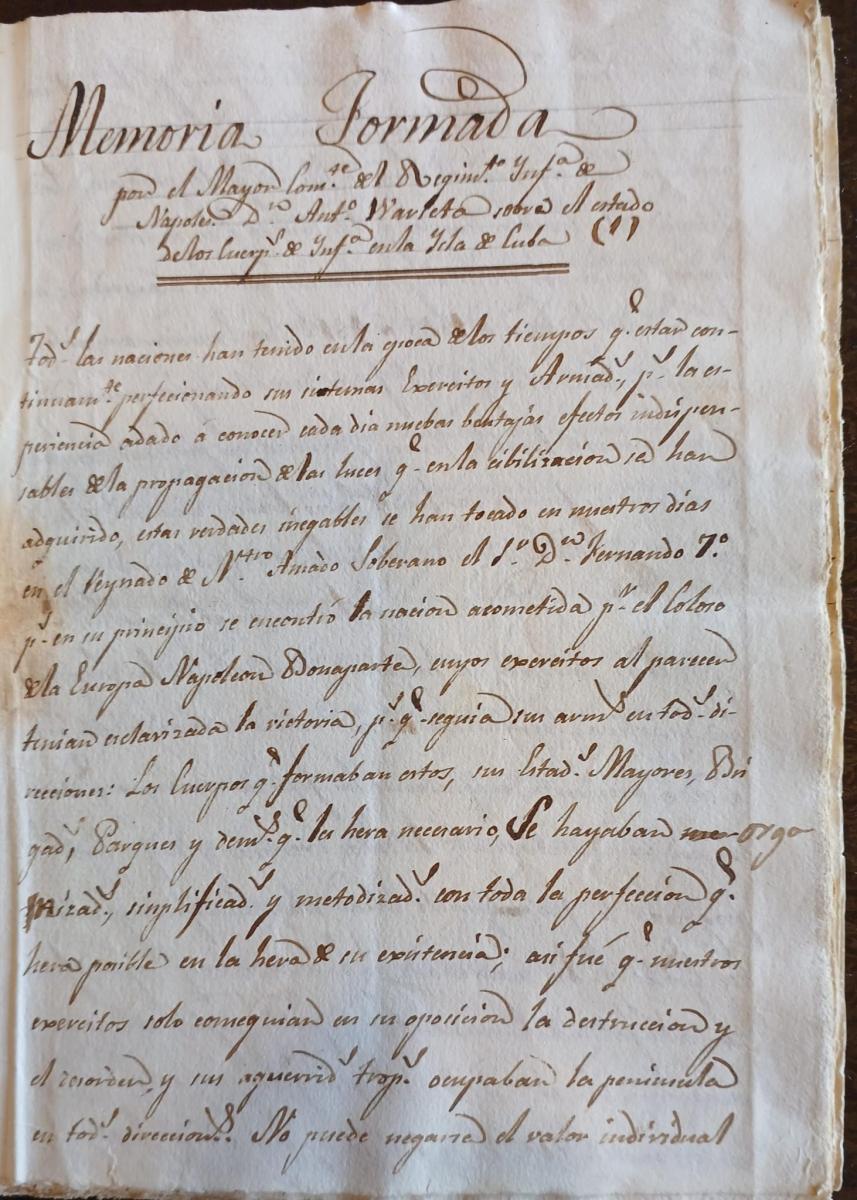 Memoria Formada
por el Mayor Com.te del Regim.to Inf.a de
Napoles D.n Ant.o Warleta sobre el estado
de los Cuerp.s de Inf.a en la Ysla de Cuba (1)
Tod.s las naciones han tenido en la epoca de los tiempos q.e estar con-
tinuam.te perfeccionando sus sistemas Exercitos y Armad.s, p.s la es-
periencia adado á conocer cada dia nuebas bentajas efectos indispen-
sables de la propagacion de las luces q.e en la cibilizacion se han
adquirido, estas verdades inegables se han tocado en nuestros dias
en el Reynado de N.tro Amado Soberano el S.r D.n Fernando 7.o
p.s en su principio se encontró la nacion acometida p.r el Coloso
de la Europa Napoleon Bonaparte, cuyos exercitos al parecer
tenian esclavizada la victoria, p.s q.e seguia sus arm.s en tod.s di-
recciones: Los Cuerpos q.e formaban estos, sus Estad.s Mayores, Bri
gad.s, Parques y dem.s q.e les hera necesario, Se hayaban orga
nizad.s, simplificad.s y metodizad.s con toda la perfeccion q.e
hera posible en la hera de su existencia; asi fué q.e nuestros
exercitos solo conseguian en su oposicion la destruccion y
el desorden, y sus aguerrid.s trop.s ocupaban la peninsula
en tod.s direccion.s. No puede negarse el valor individual